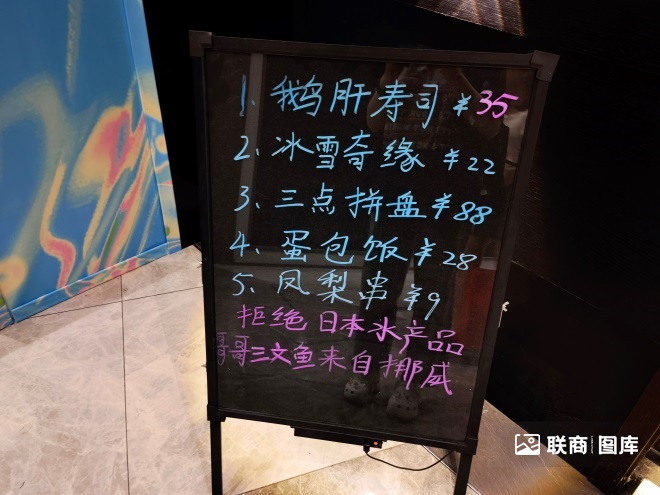 1、鹅肝寿司¥35
2、冰雪奇缘¥22
3、三点拼盘¥88
4、蛋包饭¥28
5、凤梨串¥9
拒绝日本水产品
哥哥三文鱼来自挪威
联商图库